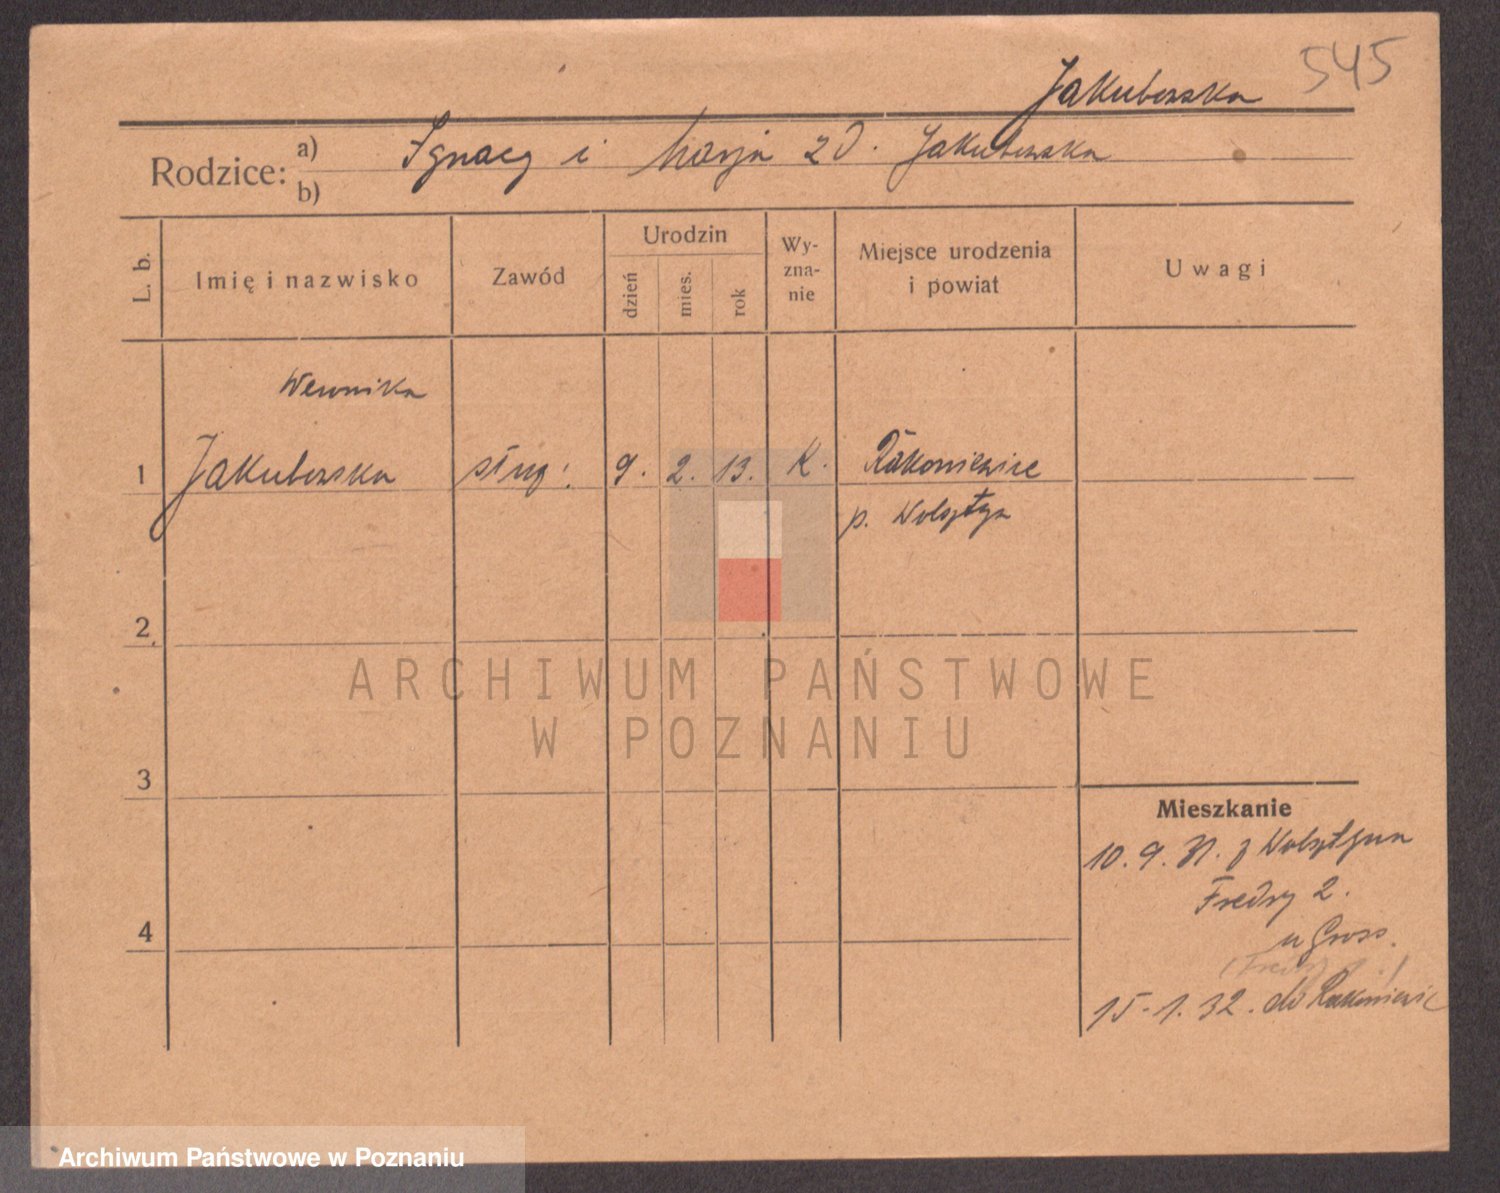 545
Jakubowska
Rodzice: a) Ignacy i Marja z d. Jakubowska
b)
L. b.
Imię i nazwisko
Zawód
Urodzin
dzień
mies.
rok
Wy-
zna-
nie
Miejsce urodzenia
i powiat
Uwagi
Weronika
1 Jakubowska służ: 9. 2. 13. K. Rakoniewice
p. Wolsztyn
2
3
4
Mieszkanie
10. 9. 31. z Wolsztyna
Fredry 2.
u Gross.
15. 1. 32. do Rakoniewic
ARCHIWUM PAŃSTWOWE
W POZNANIU
Archiwum Państwowe w Poznaniu